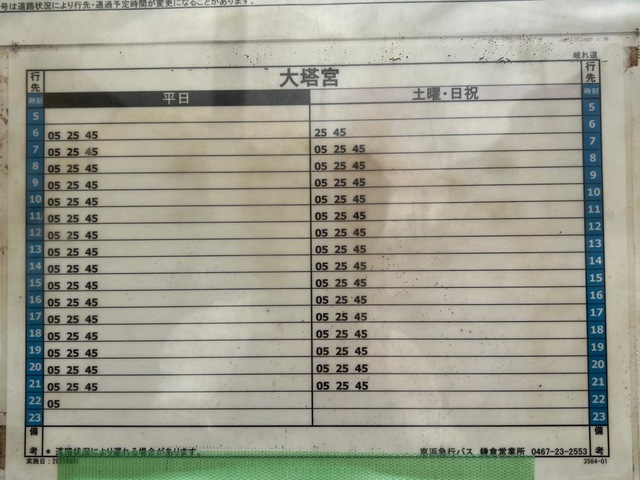 号は道路状況により行先・通過予定時間が変更になることがあります。
岐れ道
行先 大塔宮 行先
時刻 平日 土曜・日祝 時刻
5 5
6 05 25 45 25 45 6
7 05 25 45 05 25 45 7
8 05 25 45 05 25 45 8
9 05 25 45 05 25 45 9
10 05 25 45 05 25 45 10
11 05 25 45 05 25 45 11
12 05 25 45 05 25 45 12
13 05 25 45 05 25 45 13
14 05 25 45 05 25 45 14
15 05 25 45 05 25 45 15
16 05 25 45 05 25 45 16
17 05 25 45 05 25 45 17
18 05 25 45 05 25 45 18
19 05 25 45 05 25 45 19
20 05 25 45 05 25 45 20
21 05 25 45 05 25 45 21
22 05 22
23 23
備考 * 道路状況により遅れる場合があります。 京浜急行バス 鎌倉営業所 0467-23-2553 備考
実施日: 3564-01